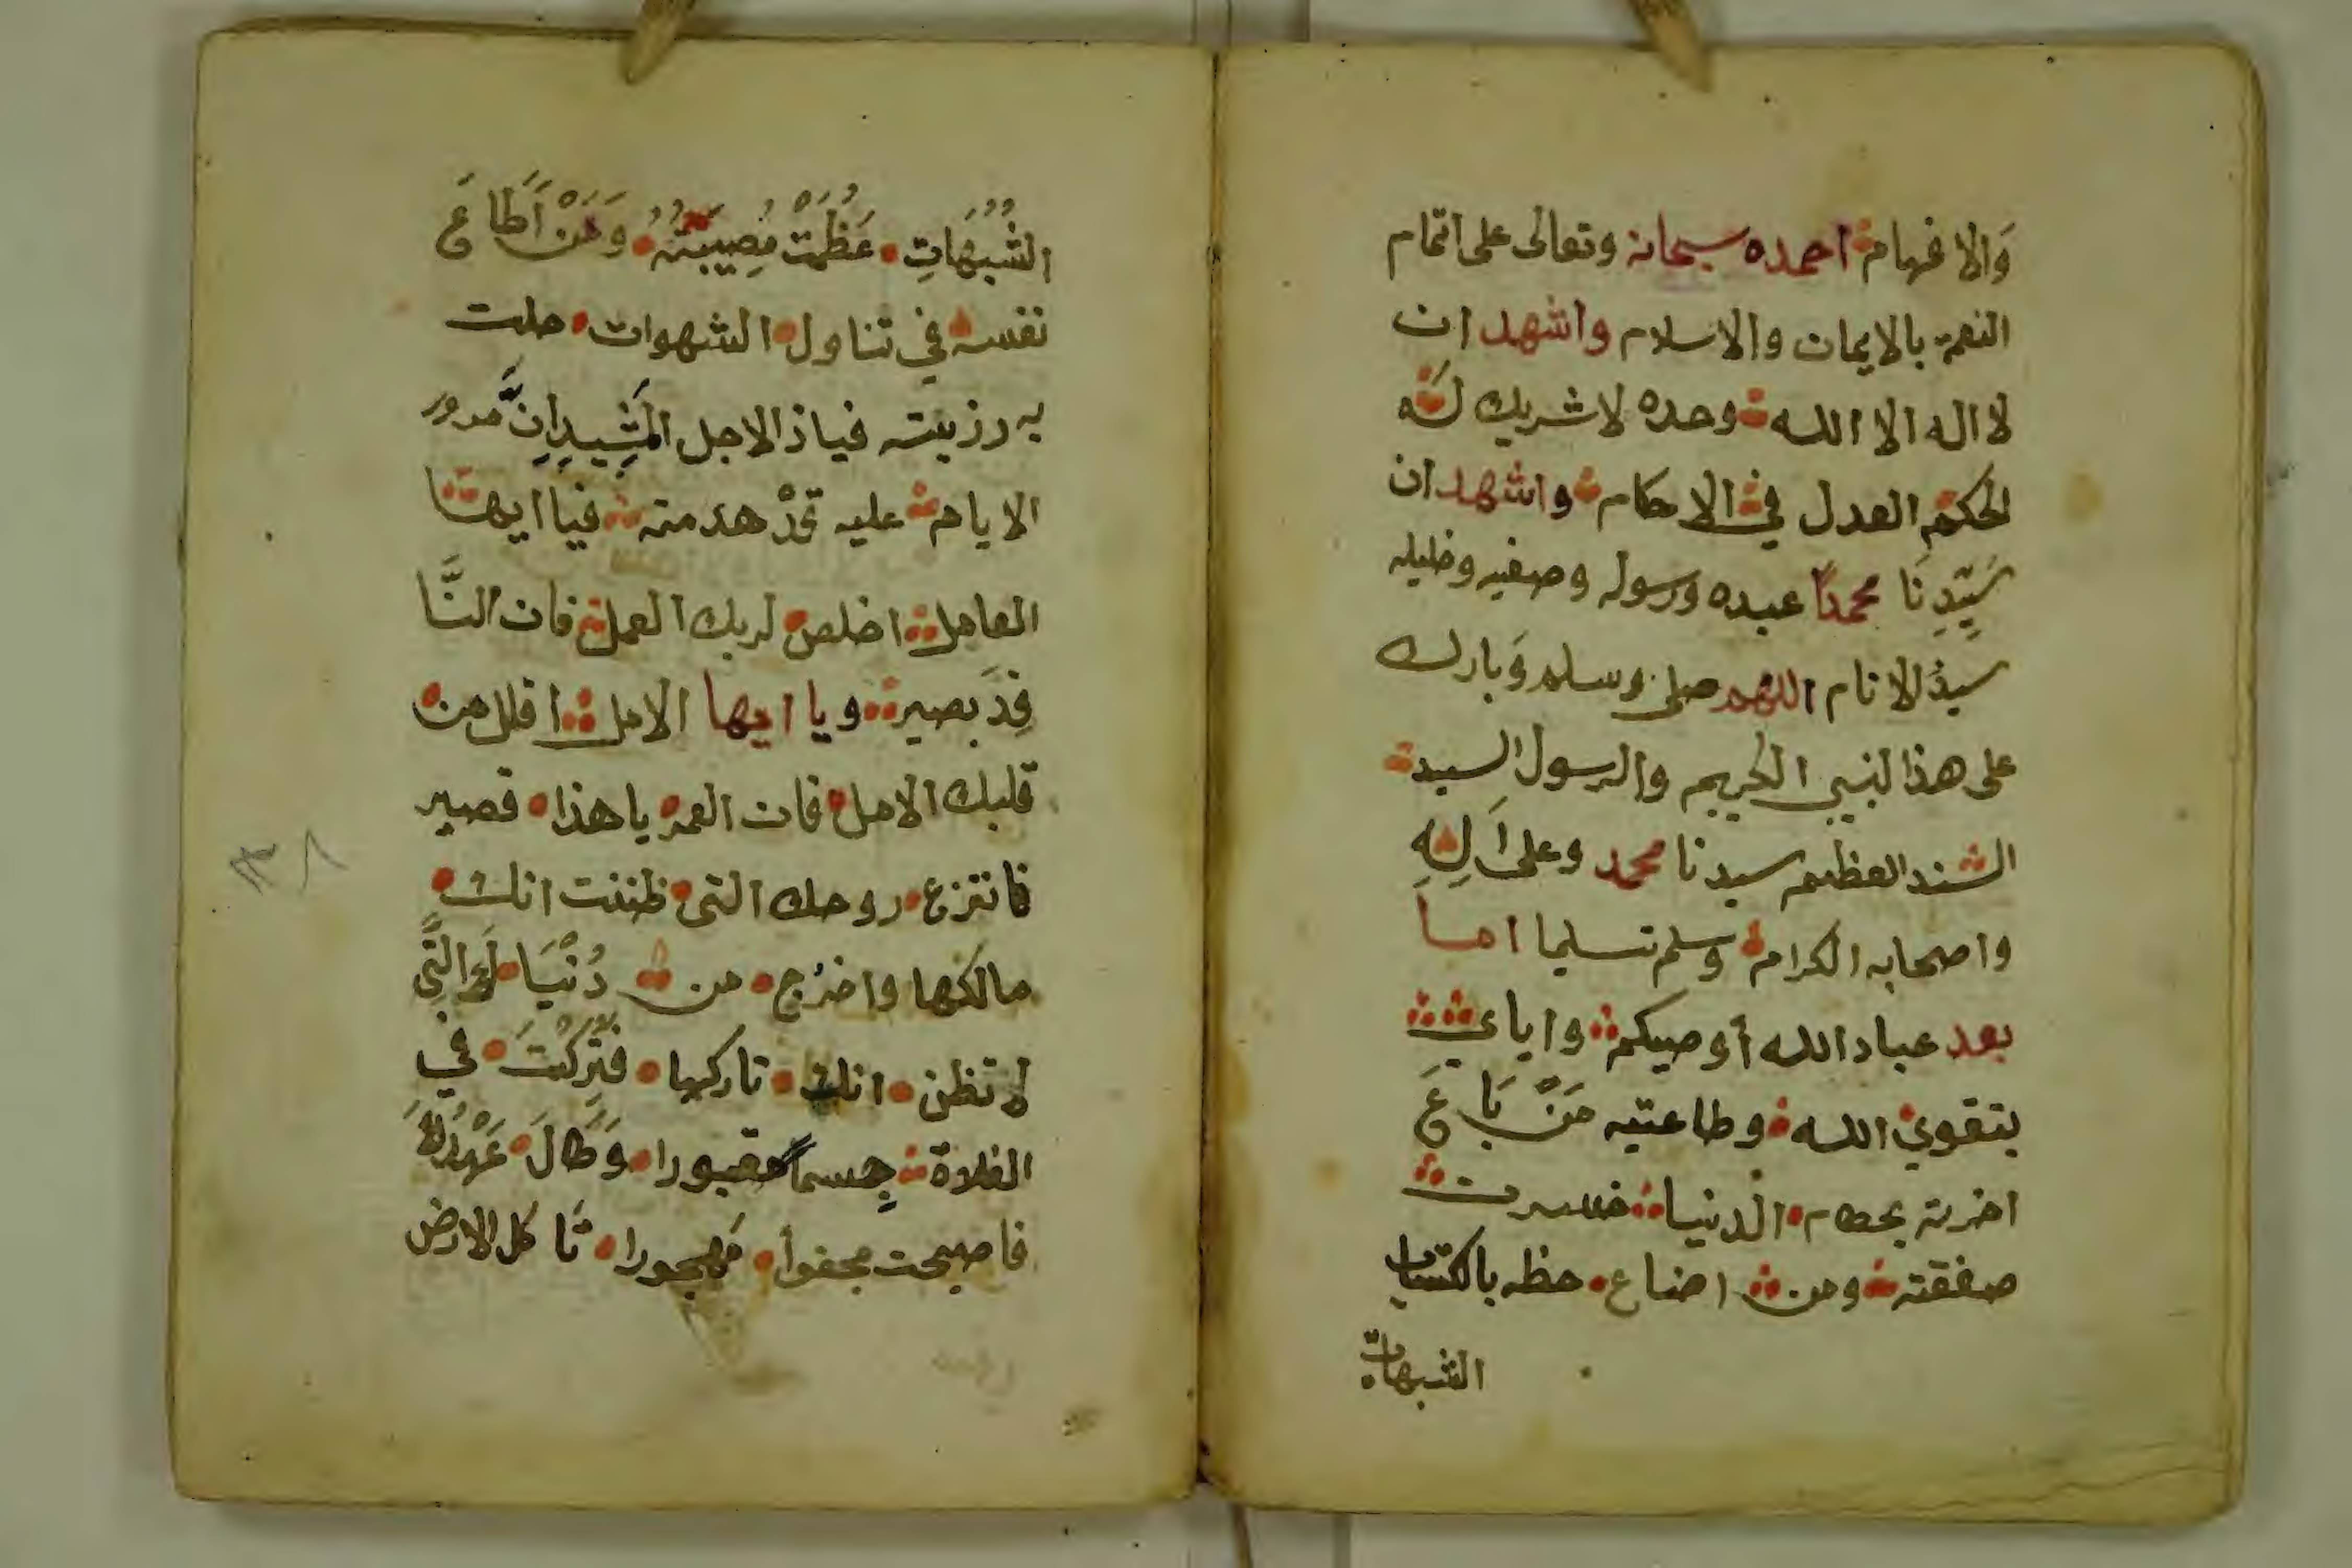 وَالافهام احمده سبحانه وتعالى على اتمام
النعمة بالايمان والاسلام واشهد ان
لا اله الا الله وحده لا شريك لَه
الحكم العدل في الاحكام واشهد ان
سَيِّدِنَا محمدًا عبده ورسوله وصفيه وخليله
سيدُ الانام اللهم صلى وسلم وَبارك
على هذا لنبي الكريم والرسول السيد
السند العظيم سيدنا محمد وعلى اَلِهِ
واصحابه الكرام وسلم تسليما اما
بعد عباد الله أوصيكم واياي
بتقوي الله وطاعتيه مَنْ بَاعَ
اخرته بحطام الدنيا خسرت
صفقته ومن اضاع حظه باكتساب
الشبهات
الشُّبُهَاتِ عَظُمَتْ مُصِيبَتُهُ وَمَنْ اَطَاعَ
نفسه في تناول الشهوات جلت
به رزيته فياذ الاجل المَشِيدِ اِنَّ مرور
الايام عليه قدْ هدمته فيا ايها
العامل اخلص لربك العمل فان النَّا
قِدَ بصير ويا ايها الامل اقلل من
قلبك الامل فان العمر يا هذا قصير
فانتزع روحك التى ظننت انك
مالكها واخرُج من دُنْيَا لَك الَّتِي
لم تظن انك تاركها فَتُرِكْتَ في
الفلاة جِسما مقبورا وَطَالَ عَهْدُكَ
فاصبحت مجفواً مَهجورا تَاكل الارض
١٣٨